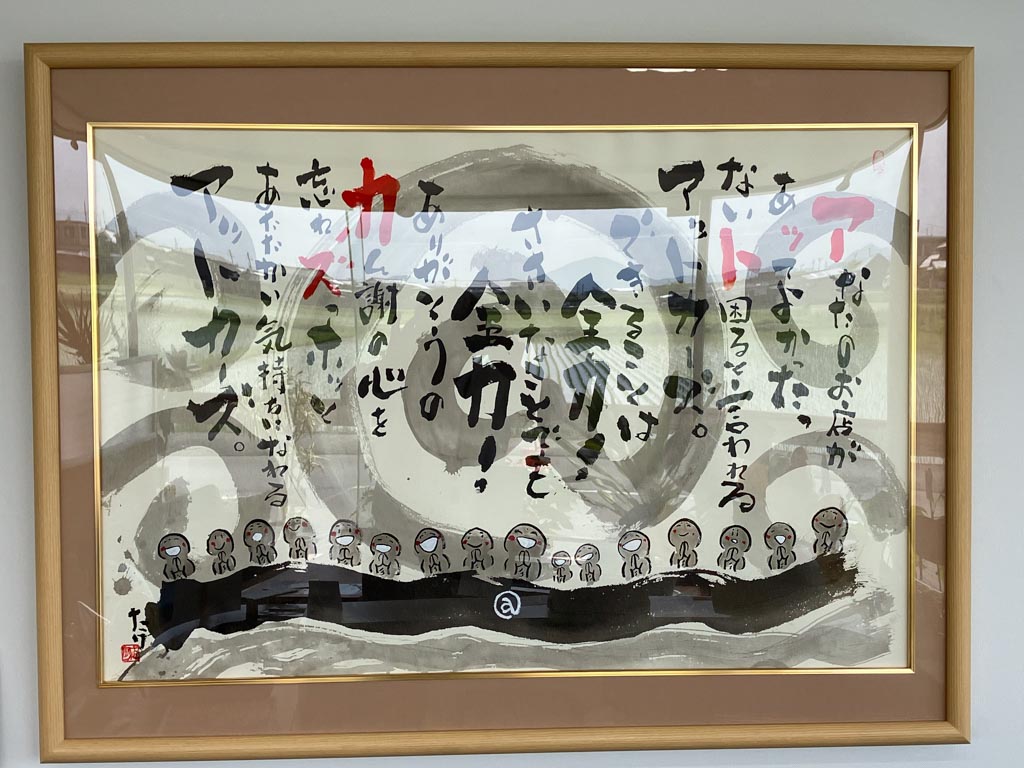 アなたのお店が
あッてよかった、
ないト困ると言われる
アットカーズ。
できることは
全力!
ことでも
全力!
ありがとうの
カん謝の心を
忘れズ ホッと
あたたかい気持ちになれる
アットカーズ。
@